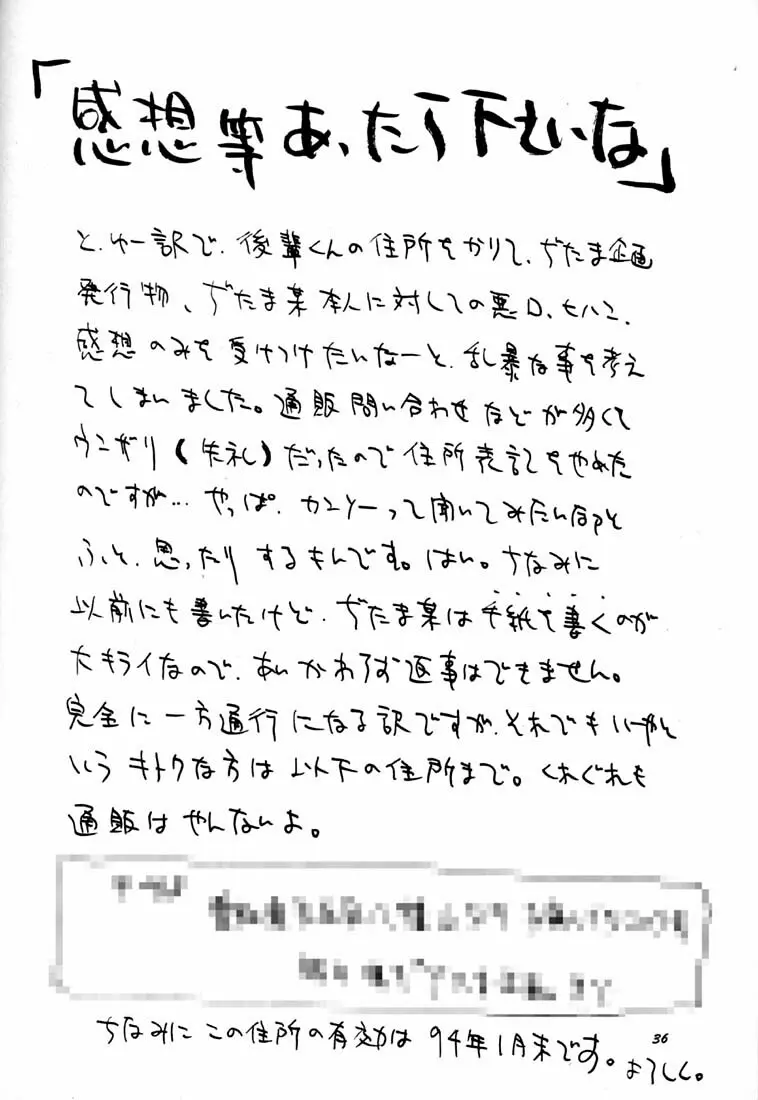 「感想等あったら下せいな」
と、ゆー訳で、後輩くんの住所をかりて、ぢたま企画
発行物、ぢたま某本人に対しての悪口、ヒハン、
感想のみを受けつけたいなーと、乱暴な事を考え
てしまいました。通販問い合わせなどが多くて
ウンザリ(失礼)だったので住所表記をやめた
のですが… やっぱ、カンソーって聞いてみたい
ふと、思ったりするもんです。はい。ちなみに
以前にも書いたけど、ぢたま某は手紙を書くのが
大キライなので、あいかわらず返事はできません。
完全に一方通行になる訳ですが、それでもいーやと
いうキトクな方は以下の住所まで。くれぐれも
通販はやんないよ。
ちなみにこの住所の有効は94年1月末です。
よろしく。
36